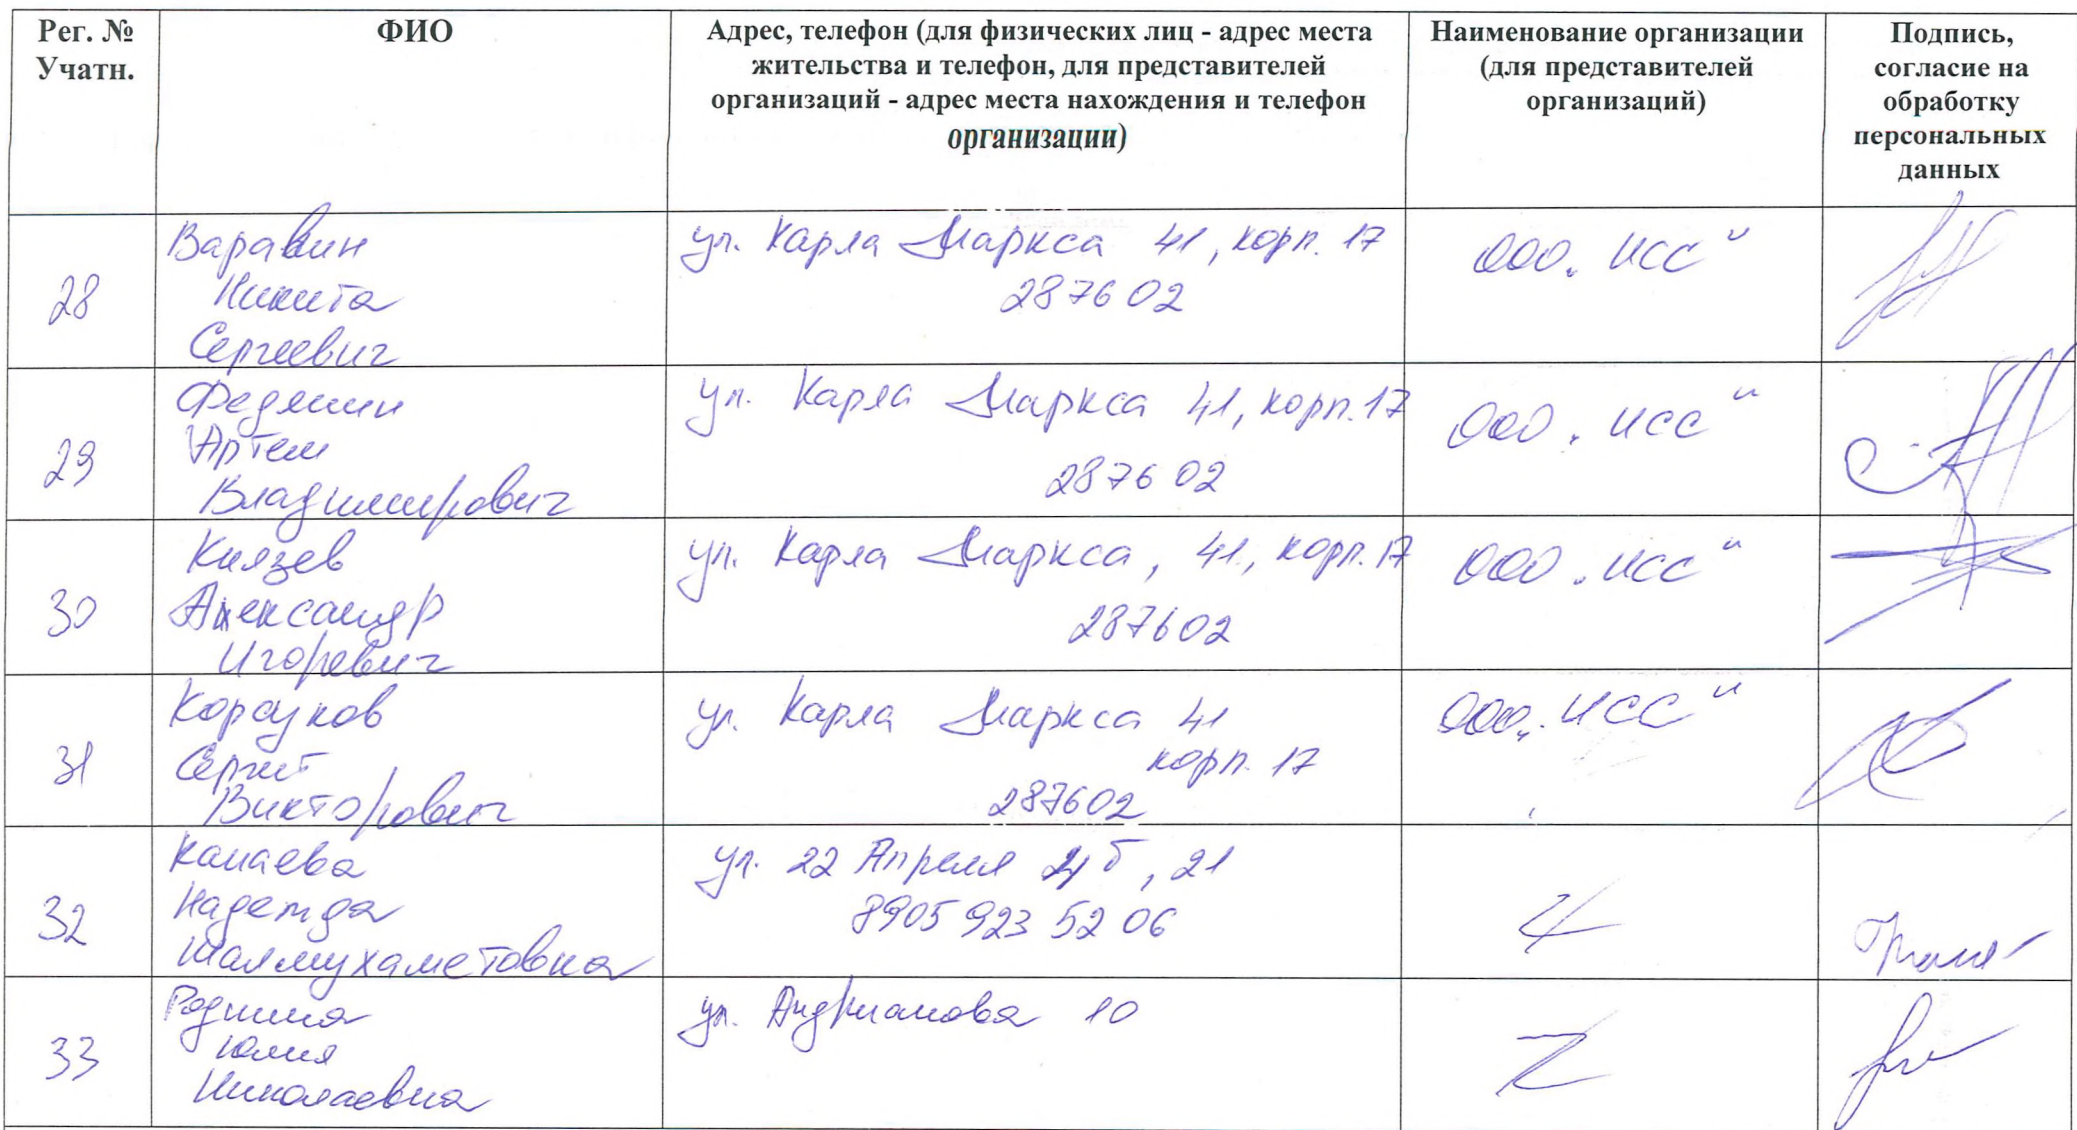 Рег. №
Учатн.
ФИО
Адрес, телефон (для физических лиц - адрес места
жительства и телефон, для представителей
организаций - адрес места нахождения и телефон
организации)
Наименование организации
(для представителей
организаций)
Подпись,
согласие на
обработку
персональных
данных
28
Варавин
Никита
Сергеевич
ул. Карла Маркса 41, корп. 17
287602
ООО „ИСС"
29
Федяшин
Артем
Владимирович
ул. Карла Маркса 41, корп. 17
287602
ООО „ИСС"
30
Князев
Александр
Игоревич
ул. Карла Маркса, 41, корп. 17
287602
ООО „ИСС"
31
Корсуков
Сергей
Викторович
ул. Карла Маркса 41
корп. 17
287602
ООО „ИСС"
32
Канаева
Надежда
Шалмухаметовна
ул. 22 Апреля
, 21
8905 923 52 06
33
Родина
Юлия
Николаевна
ул. Андрианова 10